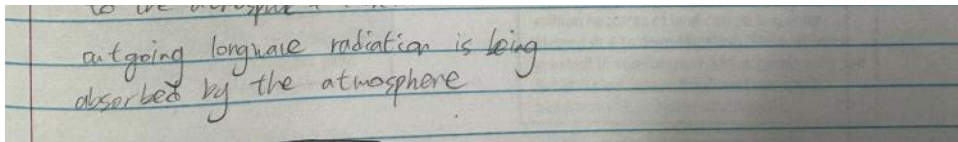 to the
outgoing longwave radiation is being
absorbed by the atmosphere